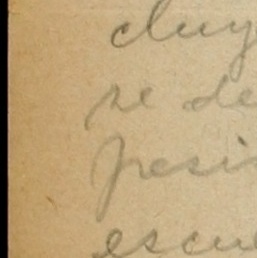 cluy
se de
presi
escue